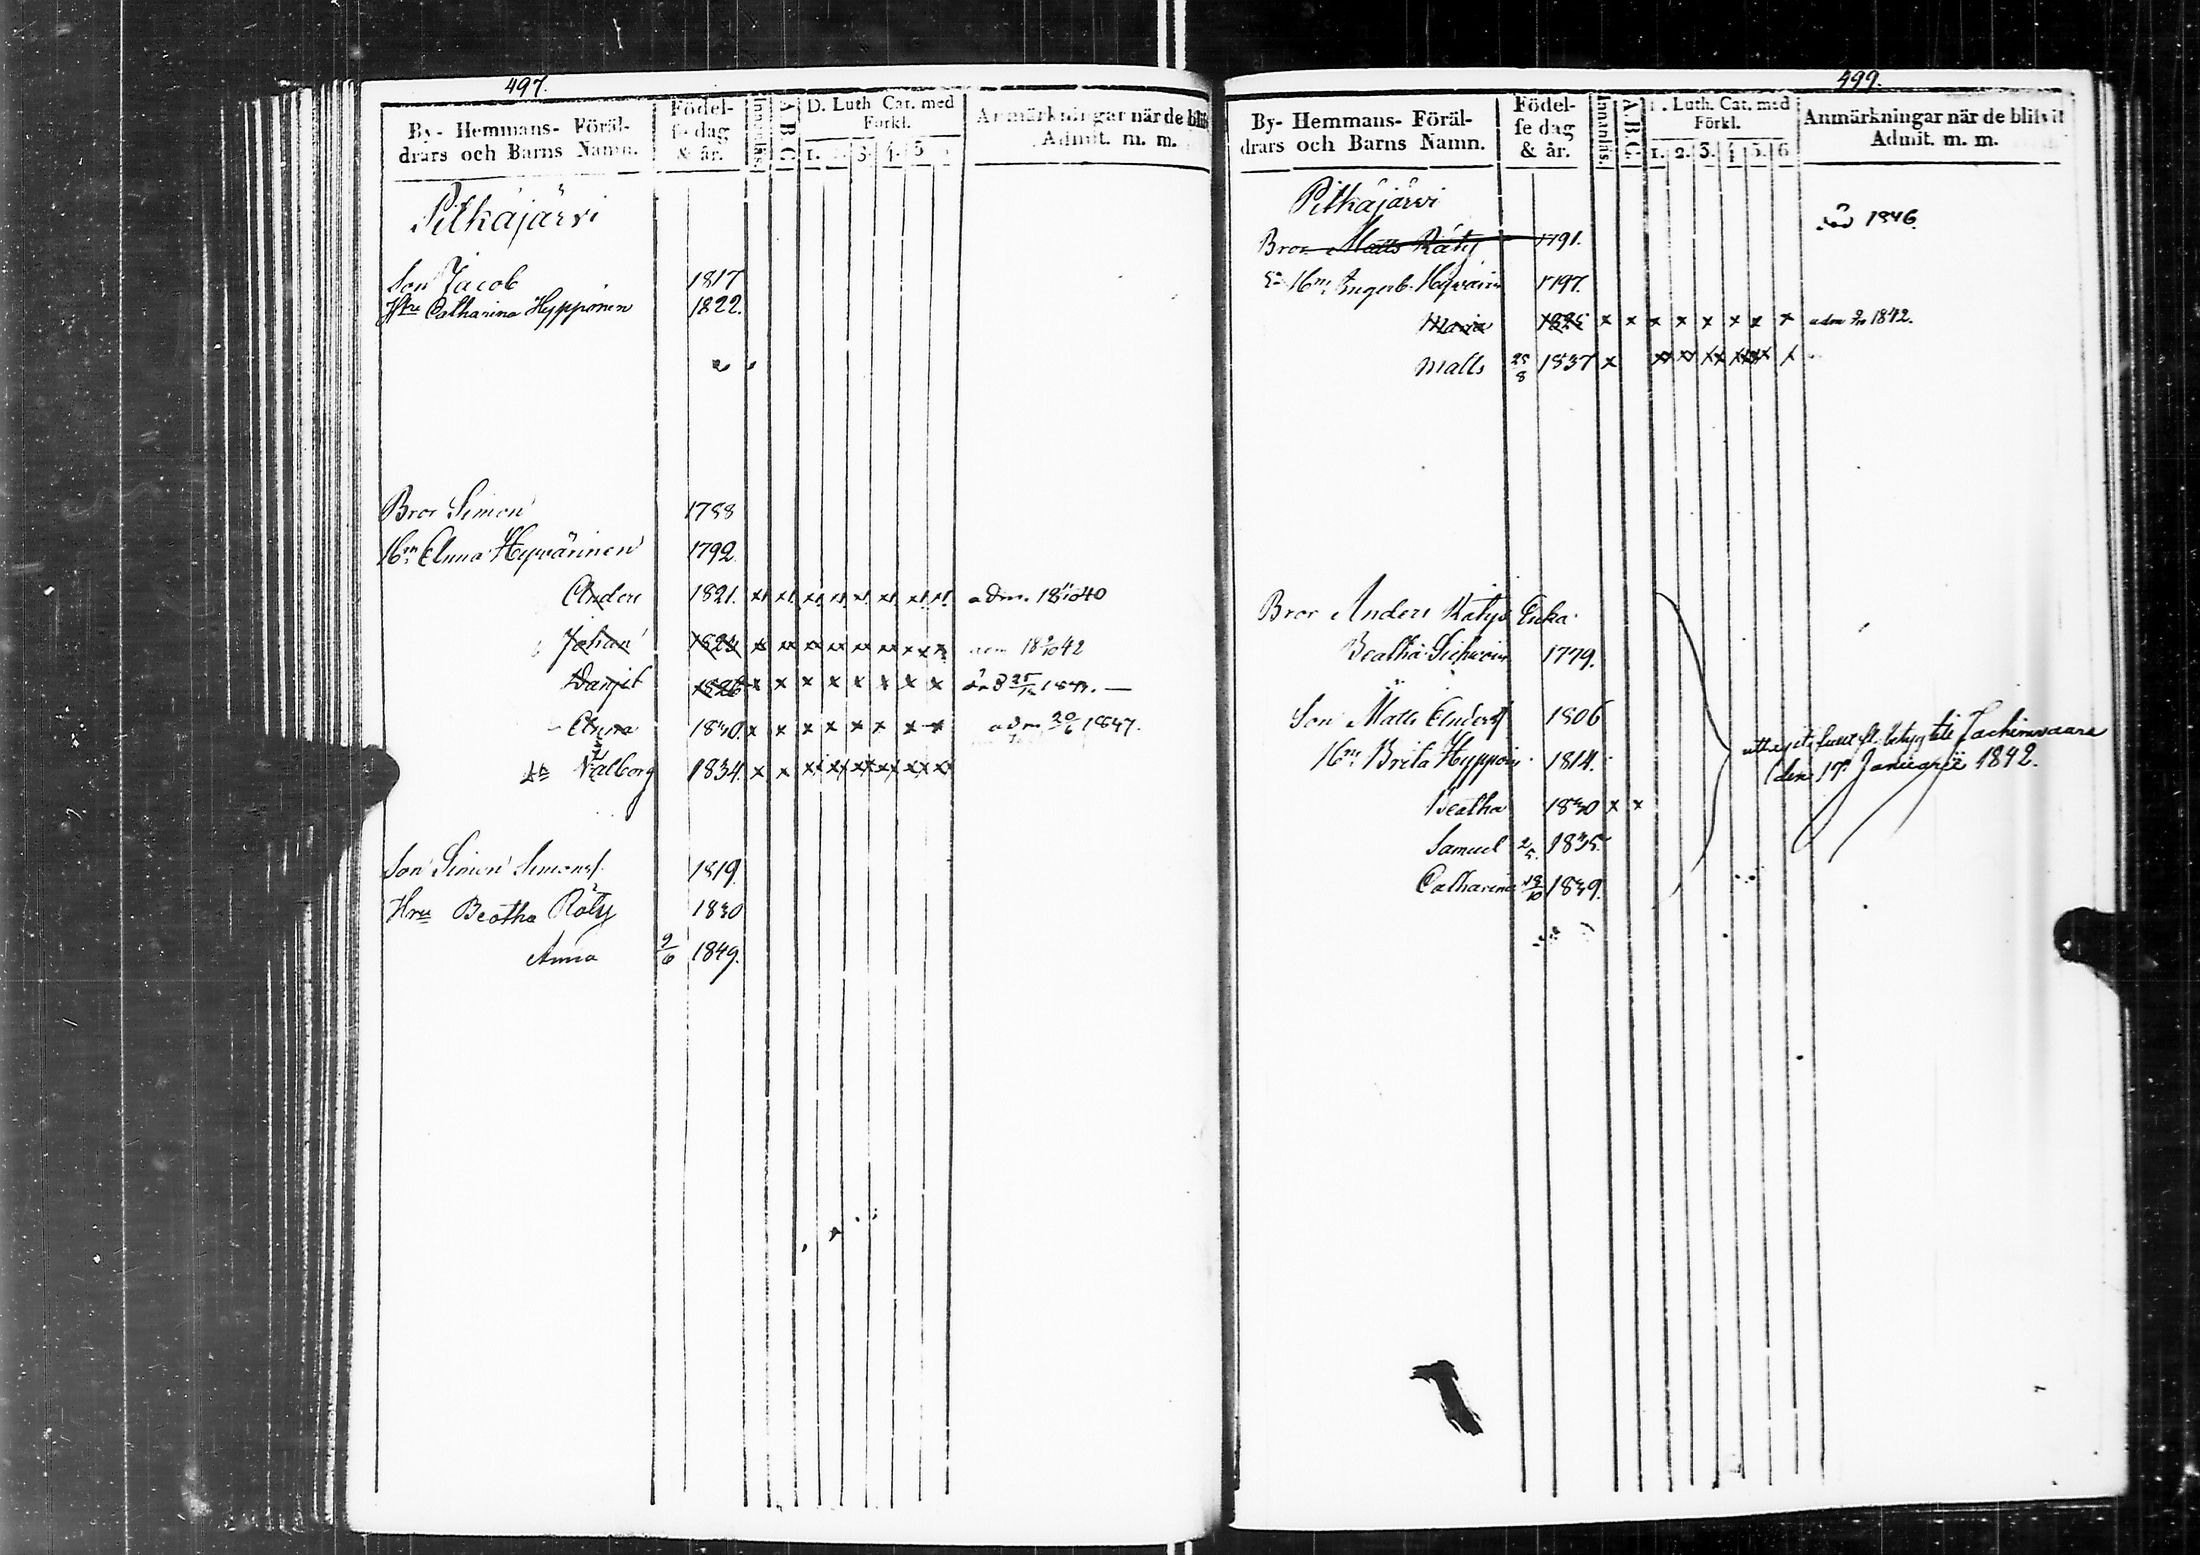 497.
By- Hemmans- Föräl-
drars och Barns Namn.
Födel-
se dag
& år.
Innanläs.
A.B.C.
D. Luth. Cat. med
Förkl.
1. 3. 4. 5
Anmärkningar när de blif
Admit. m. m.
Pitkäjärvi
Son Jacob 1817
Hru Catharina Hypponen 1822.
Bror Simon 1788
Hru Anna Hyvärinen 1792
Anders 1821. adm. 18 40
Johan 1823 18 42
1826
Anna 1830. adm 20/6 1847.
Valborg 1834.
Son Simon Simonss. 1819.
Hru Beatha Räty 1830
Anna 9/6 1849.
499.
By- Hemmans- Föräl-
drars och Barns Namn.
Födel-
se dag
& år.
Innanläs.
A.B.C.
D. Luth. Cat. med
Förkl.
1. 2. 3. 4 5. 6
Anmärkningar när de blifvit
Admit. m. m.
Pitkäjärvi
död 1846.
Bror Matts Räty 1791.
Ea Hru Ingerb. Hyvärin 1797.
Maria 1825 adm 1842.
Matts 25/8 1837
Bror Anders Rätys Enka
Beatha 1779.
Son Matts Anderss 1806
Hru Brita Hyppöin 1814.
Beatha 1830
Samuel 2/5. 1835.
till Jackimvaara
den 17. Januarii 1842.
Catharina 18/10 1839.